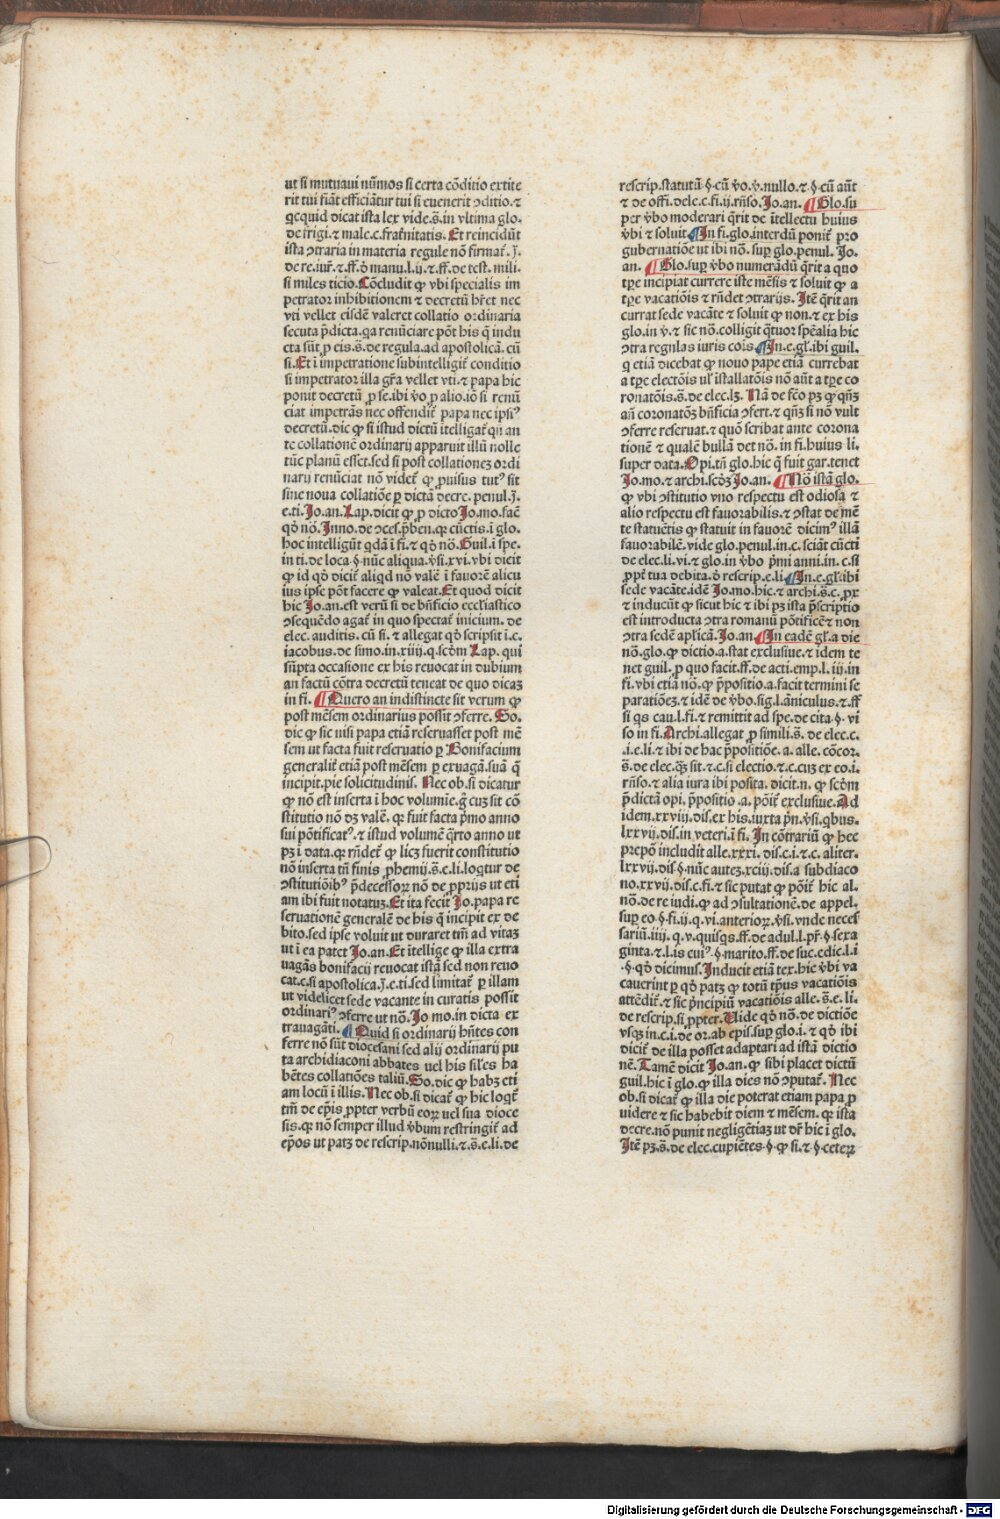 ut si mutuaui nūmos si certa cōditio extite
rit tui fiāt efficiātur tui si euenerit ↄditio.⁊
qcquid dicat ista lex vide.s̄.in vltima glo.
de frigi.⁊ male.c.fraťnitatis. Et reincidūt
ista ↄtraria in materia regule nō firmat̄. ȷ̄.
de re.iur̄.⁊.ff.d̄ manu.l.ij.⁊.ff.de test. mili.
si miles ticio. Cōcludit ꝙ vbi specialis im
petrator inhibitionem ⁊ decretū hr̄et nec
vti vellet eisdē valeret collatio ordinaria
secuta p̄dicta.qa renūciare pōt his q̄ indu
cta sūt ꝓ eis.s̄.de regula.ad apostolicā. cū
si. Et ī impetratione subintelligit̄ conditio
si impetrator illa gr̄a vellet vti.⁊ papa hic
ponit decretū ꝓ se.ibi v̄o ꝓ alio.iō si renū
ciat impetrās nec offendit̄ papa nec ipsiꝰ
decretū.dic ꝙ si istud dictū ītelligat̄ qn̄ an
te collationē ordinarij apparuit illū nolle
tūc planū esset.sed si post collationeꝫ ordi
narij renūciat nō videt̄ ꝙ ꝓuisus tutꝰ sit
sine noua collatiōe ꝑ dictā decre. penul.ȷ̄.
e.ti. Jo.an. Lap.dicit ꝙ ꝓ dicto Jo.mo.facē
qd̄ nō. Inno.de ↄces.p̄ben.qꝛ cūctis.ī glo.
hoc intelligūt qdā ī fi.⁊ qd̄ nō. Guil.ī spe.
in ti.de loca.§.nūc aliqua.v̄si.xvi.vbi dicit
ꝙ id qd̄ dicit̄ aliqd nō valē ī fauorē alicu
ius ipse pōt facere ꝙ valeat. Et quod dicit
hic Jo.an.est verū si de bn̄ficio ecclīastico
ↄsequēdo agat̄ in quo spectat̄ inicium. de
elec. auditis. cū si.⁊ allegat qd̄ scripsit ī.c.
iacobus.de simo.in.xiiij.q.scd̄m Lap. qui
sūpta occasione ex his reuocat in dubium
an factū cōtra decretū teneat de quo dicaꝫ
in fi. ¶ Quero an indistincte sit verum ꝙ
post mēsem ordinarius possit ↄferre. So.
dic ꝙ sic nisi papa etiā reseruasset post mē
sem ut facta fuit reseruatio ꝑ Bonifacium
generalit̄ etiā post mēsem ꝑ exuagā.suā q̄
incipit.pie solicitudinis. Nec ob.si dicatur
ꝙ nō est inserta ī hoc volumīe.q̄ cuꝫ sit cō
stitutio nō dꝫ valē. qꝛ fuit facta p̄mo anno
sui pōtificatꝰ.⁊ istud volumē q̄rto anno ut
pꝫ ī data.qꝛ rn̄det̄ ꝙ licꝫ fuerit constitutio
nō inserta tn̄ finis ꝓhemij.s̄.e.li.loqtur de
ↄstitutiōibꝰ p̄decessoꝝ nō de ꝓprijs ut eti
am ibi fuit notatuꝫ. Et ita fecit Jo.papa re
seruationē generalē de his q̄ incipit ex de
bito.sed ipse voluit ut duraret tm̄ ad vitaꝫ
ut ī ea patet Jo.an. Et ītellige ꝙ illa extra
uagās bonifacij reuocat istā sed non reuo
cat.c.si apostolica.ȷ̄.e.ti.sed limitat̄ ꝑ illam
ut videlicet sede vacante in curatis possit
ordinariꝰ ↄferre ut nō. Jo mo.in dicta ex
trauagāti. ¶ Quid si ordinarij hn̄tes con
ferre nō sūt diocesani sed alij ordinarij pu
ta archidiaconi abbates uel his sil̄es ha
bētes collatiōes taliū. So.dic ꝙ habꝫ eti
am locū ī illis. Nec ob.si dicat̄ ꝙ hic loqt̄
tm̄ de ep̄is ꝓpter verbū eoꝝ uel sua dioce
sis.qꝛ nō semper illud v̄bum restringit̄ ad
ep̄os ut patꝫ de rescrip.nōnulli.⁊.s̄.e.li.de
rescrip.statutū.§.cū v̄o.v̄.nullo.⁊.§.cū aūt
⁊ de offi.dele.c.fi.ij.rn̄so. Jo.an. ¶ Glo.su
per v̄bo moderari q̄rit de ītellectu huius
v̄bi ⁊ soluit ¶ In fi.glo.interdū ponit̄ pro
gubernatiōe ut ibi nō. suꝑ glo.penul. Jo.
an. ¶ Glo.suꝑ v̄bo numerādū q̄rit a quo
tꝑe incipiat currere iste mēsis ⁊ soluit ꝙ a
tꝑe vacatiōis ⁊ rn̄det ↄtrarijs. Itē q̄rit an
currat sede vacāte ⁊ soluit ꝙ non.⁊ ex his
glo.in v̄.⁊ sic nō.colligit q̄tuor spēalia hic
ↄtra regulas iuris cōis. ¶ In.e.gl̄.ibi guil.
q etiā dicebat ꝙ nouo pape etiā currebat
a tꝑe electōis ul̄ īstallatōis nō aūt a tꝑe co
ronatōis.s̄.de elec.lꝫ. Nā de fc̄o pꝫ ꝙ qn̄ꝫ
an̄ coronatōꝫ bn̄ficia ↄfert.⁊ qn̄ꝫ si nō vult
ↄferre reseruat.⁊ quō scribat ante corona
tionē ⁊ qualē bullā det nō. in fi.huius li.
super data. Opi.tn̄ glo.hic q̄ fuit gar.tenet
Jo.mo.⁊ archi.scd̄ꝫ Jo.an. ¶ Nō istā glo.
ꝙ vbi ↄstitutio vno respectu est odiosa ⁊
alio respectu est fauorabilis.⁊ ↄstat de mē
te statuētis ꝙ statuit in fauorē dicimꝰ illā
fauorabilē.vide glo.penul.in.c. sciāt cūcti
de elec.li.vi.⁊ glo.in v̄bo p̄mi anni.in.c.si
ꝓpt̄ tua debita.d̄ rescrip.e.li. ¶ In.e.gl̄.ibi
sede vacāte.idē Jo.mo.hic.⁊ archi.s̄.c. ꝓx
⁊ inducūt ꝙ sicut hic ⁊ ibi pꝫ ista p̄scriptio
est introducta ↄtra romanū pōtificē ⁊ non
ↄtra sedē apl̄icā. Jo.an. ¶ In eadē gl̄.a die
nō.glo.ꝙ dictio.a.stat exclusiue.⁊ idem te
net guil.ꝓ quo facit.ff.de acti.emp.l.iij.in
fi.vbi etiā nō.ꝙ p̄positio.a.facit termini se
paratiōeꝫ.⁊ idē de v̄bo.sig.l.āniculus.⁊.ff
si qs cau.l.fi.⁊ remittit ad spe.de cita.§.vi
so in fi. Archi.allegat ꝓ simili.s̄. de elec.c.
.i.e.li.⁊ ibi de hac p̄positiōe.a.alle. cōcor.
s̄.de elec.qꝫ sit.⁊.c.si electio.⁊.c.cuꝫ ex eo.i.
rn̄so.⁊ alia iura ibi posita.dicit.n. ꝙ scd̄m
p̄dictā opi.p̄positio.a.pōit̄ exclusiue. Ad
idem.xxviij.dis.ex his.iuxta pn̄.v̄si.qbus.
lxxvij.dis.in veteri.ī fi. In cōtrariū ꝙ hec
prepō includit alle.xxxi. dis.c.i.⁊.c. aliter.
lxxvij.dis.§.nūc auteꝫ.xciij.dis.a subdiaco
no.xxvij.dis.c.fi.⁊ sic putat ꝙ pōit̄ hic al.
nō.de re iudi.ꝙ ad ↄsultationē.de appel.
suꝑ eo.§.fi.ij.q.vi.anterioꝝ.v̄si.vnde neces
sariū.iiij.q.v.quisqs.ff.de adul.l.pr̄.§.sexa
ginta.⁊.l.is cuiꝰ.§.marito.ff.de suc.edic.l.i
.§.qd̄ dicimus. Inducit etiā tex.hic v̄bi va
cauerint ꝑ qd̄ patꝫ ꝙ totū tp̄us vacatiōis
attēdit̄.⁊ sic p̄ncipiū vacatiōis alle.s̄.e. li.
de rescrip.si ꝓpter. Uide qd̄ nō.de dictiōe
vsqꝫ in.c.i.de or.ab epis.suꝑ glo.i.⁊ qd̄ ibi
dicit̄ de illa posset adaptari ad istā dictio
nē. Tamē dicit Jo.an.ꝙ sibi placet dictū
guil.hic ī glo.ꝙ illa dies nō ↄputat̄. Nec
ob.si dicat̄ ꝙ illa die poterat etiam papa ꝓ
uidere ⁊ sic habebit diem ⁊ mēsem. qꝛ ista
decre.nō punit negligētiaꝫ ut dr̄ hic ī glo.
Itē pꝫ.s̄.de elec.cupiētes.§.ꝙ si.⁊.§.ceteꝝ
Digitalisierung gefördert durch die Deutsche Forschungsgemeinschaft - DFG